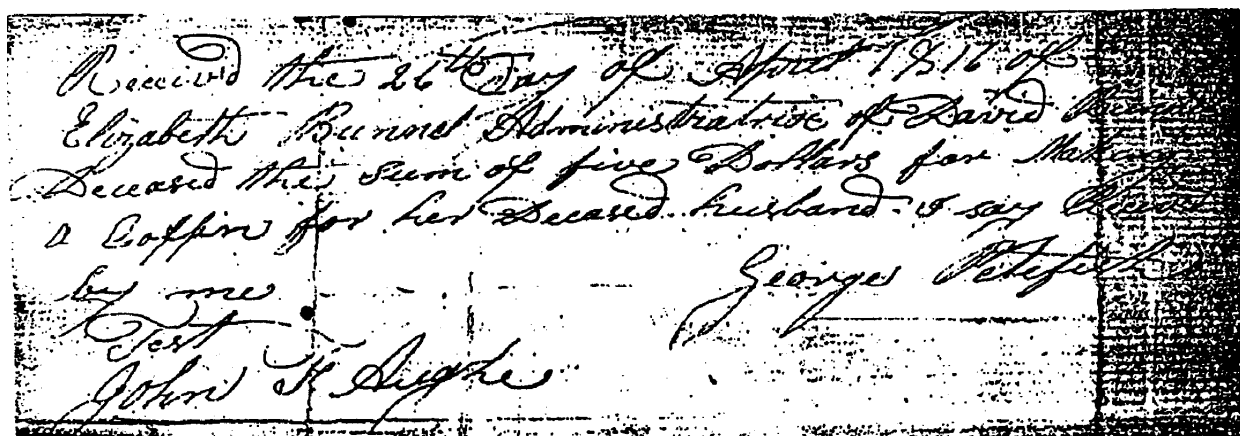 Received the 26th Day of April 1816 of
Elizabeth Bunnel Administratrix of David
Deceased the Sum of five Dollars for Making
a Coffin for her Deceased husband I say
by me George
Test
John K Aughe